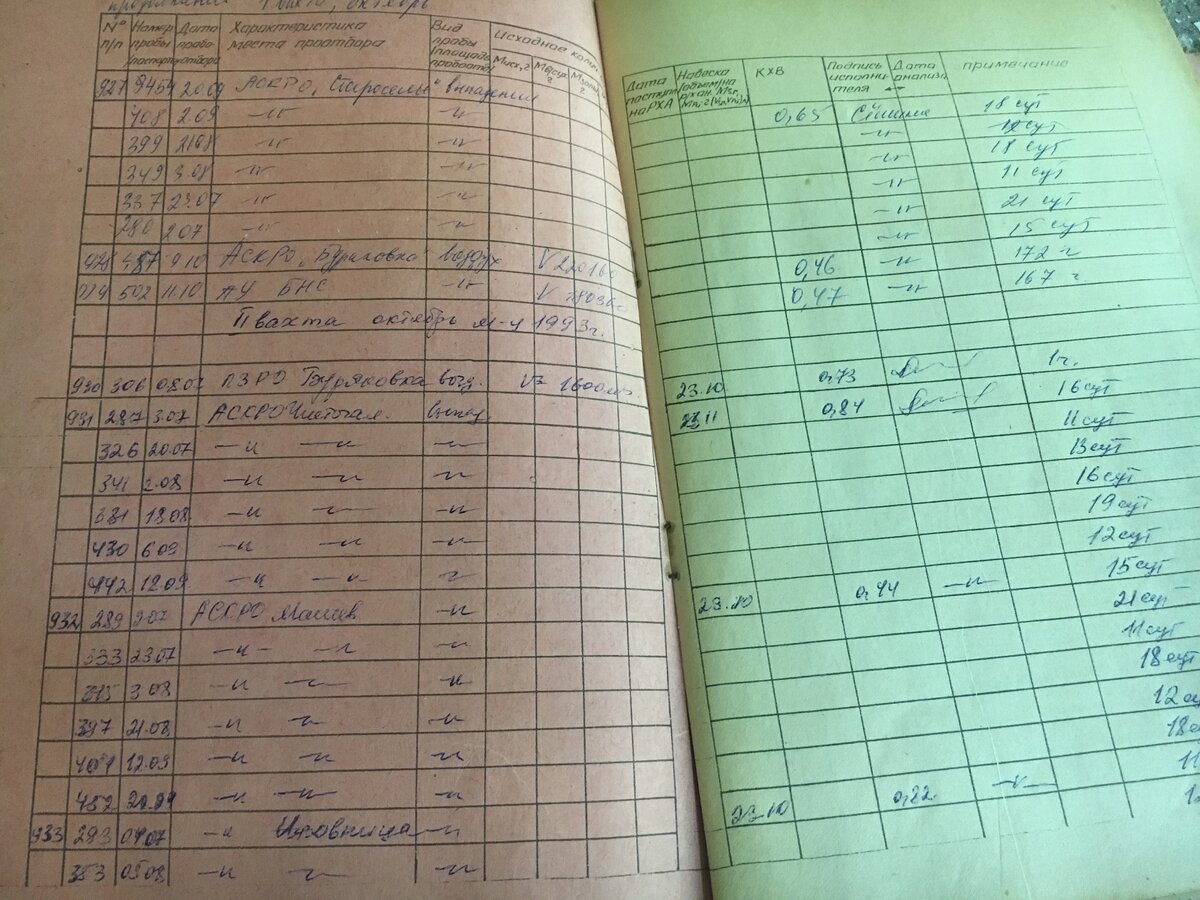 октябрь
N° п/п Номер пробы Дата пробо отбора Характеристика места проотбора Вид пробы (площадь Исходное
927 9454 20.09 АСКРО, Староселье выпадения
408 2.09 -"- -"-
399 21.08 -"- -"-
349 3.08 -"- -"-
337 23.07 -"- -"-
280 2.07 -"- -"-
928 487 9.10 АСКРО „Буряковка" воздух V 220160
502 11.10 АУ БНС -"- V
II вахта октябрь м-ц 1993г.
930 306 08.07 ПЗРО Буряковка возд. 1600
931 287 3.07 АСКРО Чистогал. выпад.
326 20.07 -"- -"- -"-
341 2.08 -"- -"- -"-
381 18.08 -"- -"- -"-
430 6.09 -"- -"- -"-
442 12.09 -"- -"- -"-
932 289 2.07 АСКРО Машев -"-
333 23.07 -"- -"- -"-
345 3.08 -"- -"- -"-
397 21.08 -"- -"- -"-
404 12.09 -"- -"- -"-
452 20.09 -"- -"- -"-
933 293 04.07 -"- Иловница -"-
353 05.08 -"- -"- -"-
Дата поступл на РХА Навеска (объем) на КХВ Подпись исполни-теля Дата анализа примечание
0,65 18 сут
-"- 12 сут
-"- 18 сут
-"- 11 сут
-"- 21 сут
-"- 15 сут
0,46 -"- 172 ч
0,47 -"- 167 ч
23.10 0,73 1ч.
23.11 0,84 16 сут
11 сут
13 сут
16 сут
19 сут
12 сут
15 сут
23.10 0,44 -"- 21 сут
11 сут
18 сут
12
18
11
23.10 0,82 -"-